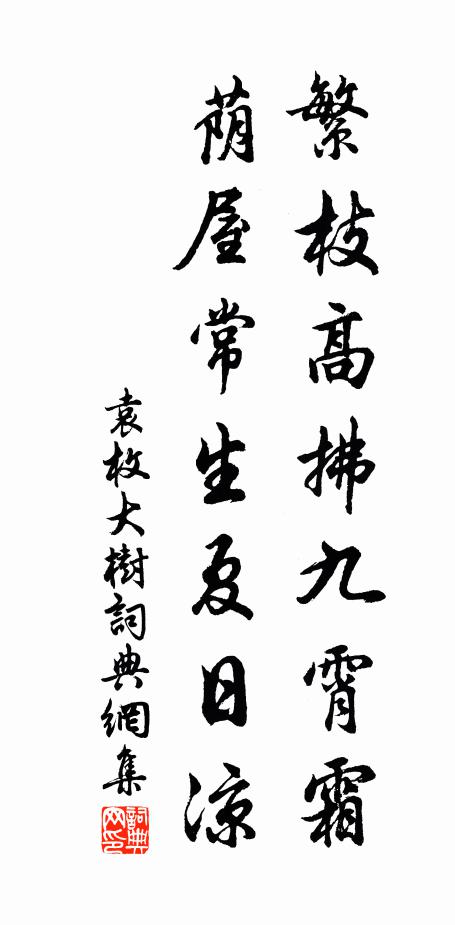 繁枝高拂九霄霜
荫屋常生夏日涼
袁枚大樹詞典網集
詞典网印